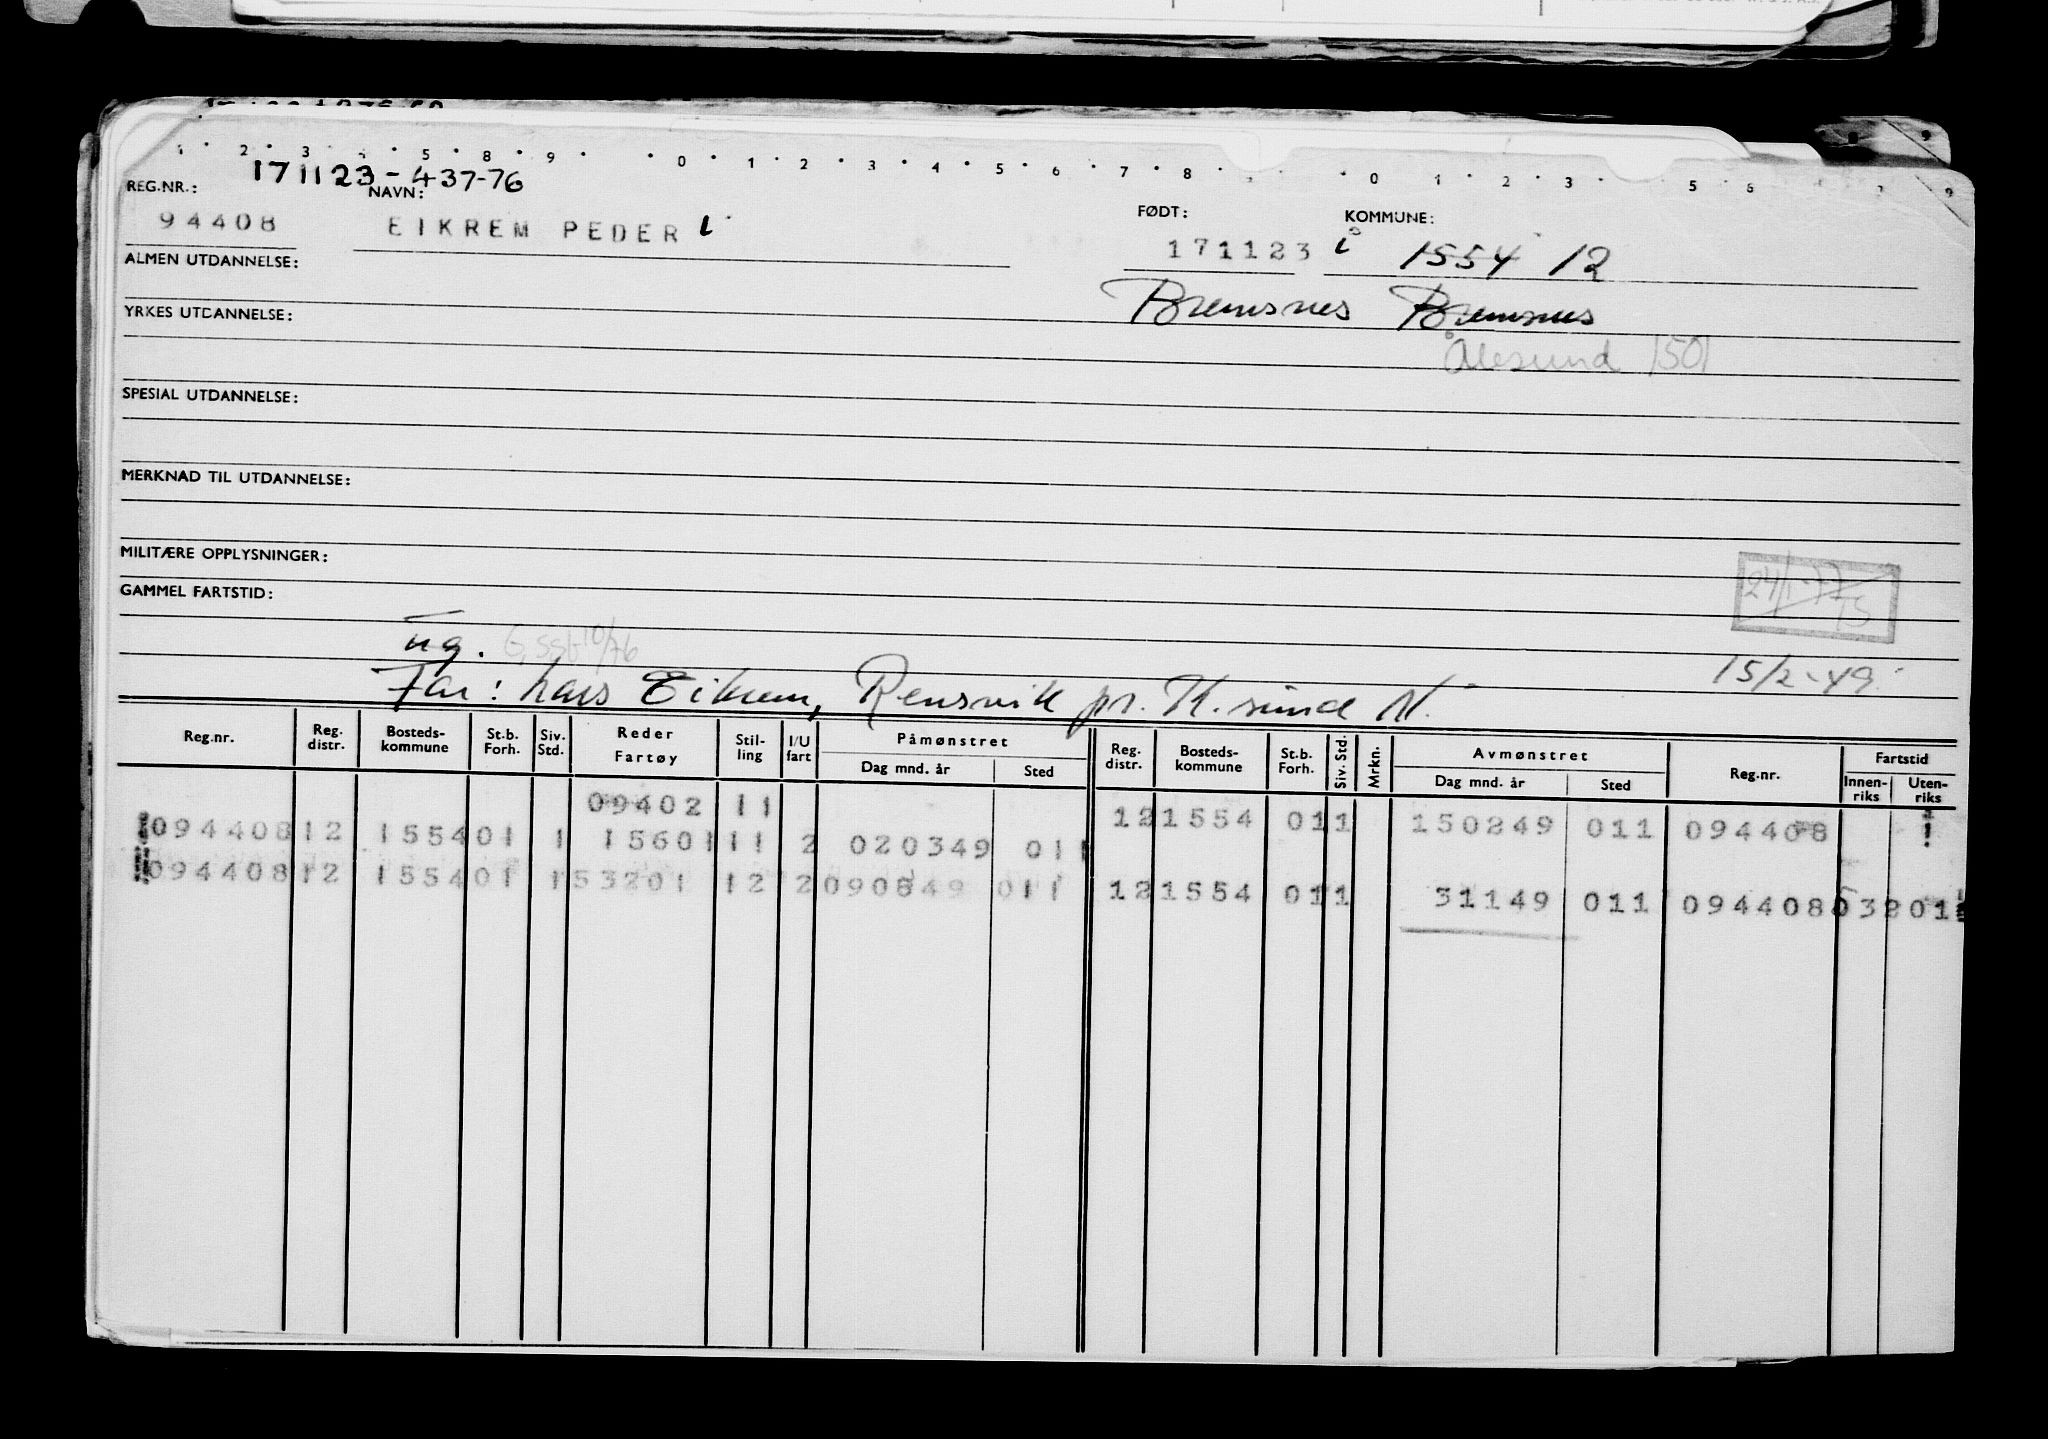 1 · 2 · 3 · 4 · 5 · 8 · 9 · · 0 · 1 · 2 · 3 · 4 · 5 · 6 · 7 · 8 · · 0 · 1 · 2 · 3 · 5 6 9
171123-437-76
REG.NR.: NAVN: FØDT: KOMMUNE:
94408 EIKREM PEDER 171123 1554 12
ALMEN UTDANNELSE:
Bremsnes Bremsnes
YRKES UTDANNELSE:
Ålesund 1501
SPESIAL UTDANNELSE:
MERKNAD TIL UTDANNELSE:
MILITÆRE OPPLYSNINGER:
24/1-77
GAMMEL FARTSTID:
ug. 10/76
15/2-49
Far: Lars Eikrem, Rensvik pr. K.sund N.
Reg.nr. Reg. distr. Bosteds-kommune St.b. Forh. Siv. Std. Reder Fartøy Stil-ling I/U fart Påmønstret Dag mnd. år Sted Reg. distr. Bosteds-kommune St.b. Forh. Siv. Std. Mrkn. Avmønstret Dag mnd. år Sted Reg.nr. Fartstid Innen-riks Uten-riks
09402 11 12 1554 01 1 150249 011 094408
094408 12 1554 01 1 15601 11 2 020349 011
094408 12 1554 01 1 53201 12 2 090849 011 12 1554 01 1 31149 011 094408 53201